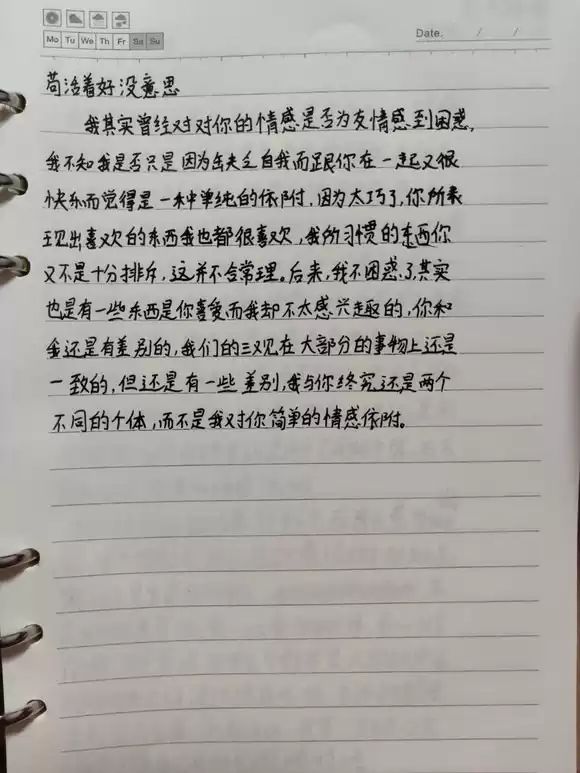 Mo Tu We Th Fr Sa Su
Date. / /
苟活着好没意思
我其实曾经对对你的情感是否为友情感到困惑,
我不知我是否只是因为缺失乏自我而跟你在一起又很
快乐而觉得是一种单纯的依附,因为太巧了,你所表
现出喜欢的东西我也都很喜欢,我所习惯的东西你
又不是十分排斥,这并不合常理。后来,我不困惑了,其实
也是有一些东西是你喜爱而我却不太感兴趣的,你和
我还是有差别的,我们的三观在大部分的事物上还是
一致的,但还是有一些差别,我与你终究还是两个
不同的个体,而不是我对你简单的情感依附。